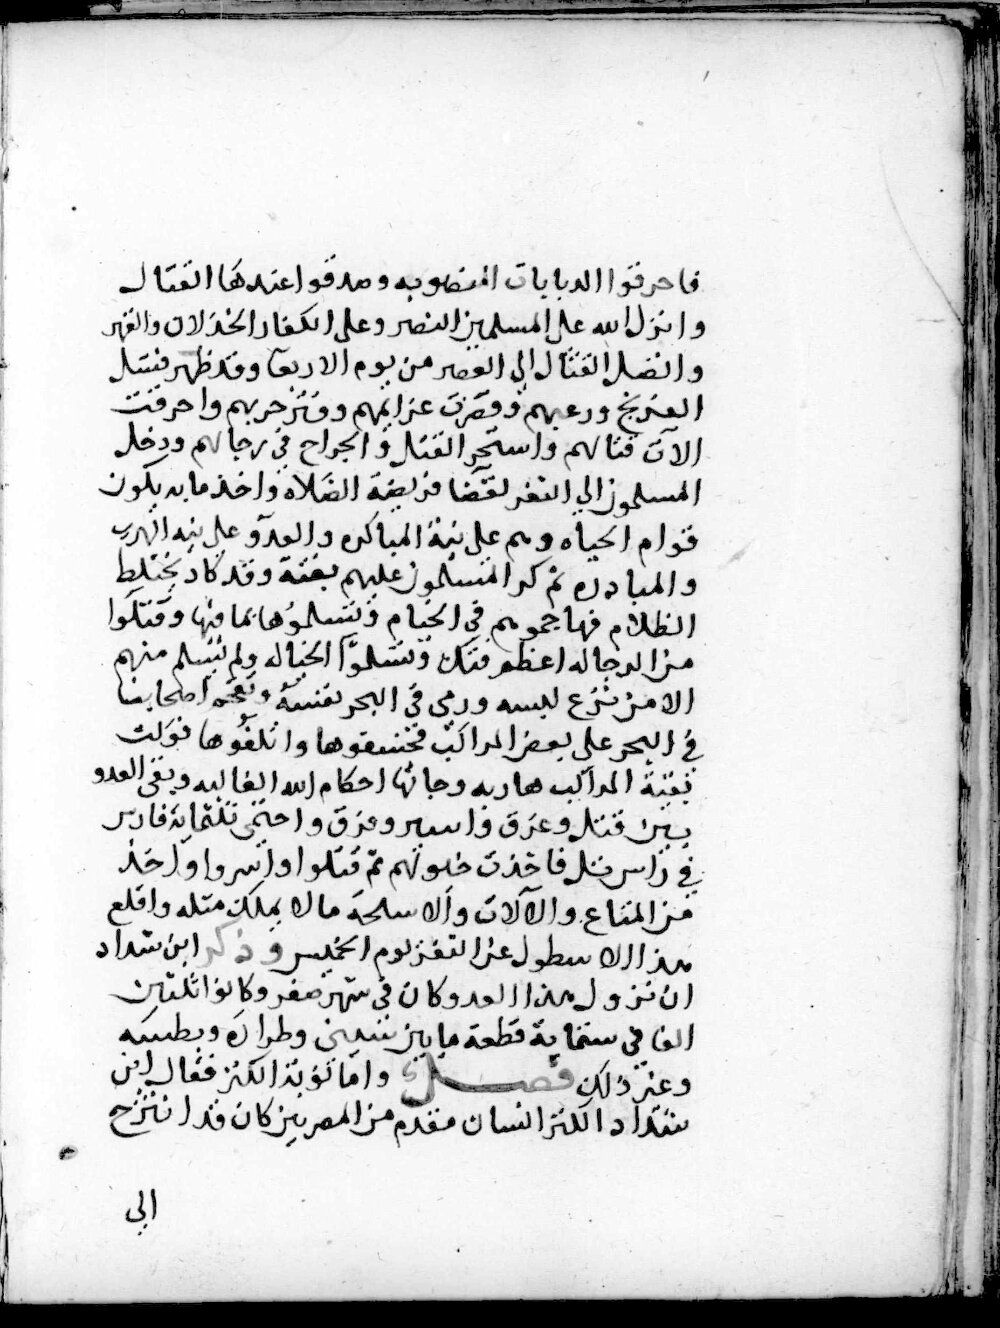 فاحرقوا الدبابات المنصوبه وصدقوا عندها القتال
وانزل الله على المسلمين النصر وعلى الكفار الخذلان والقهر
واتصل القتال الى العصر من يوم الاربعا وقد ظهر فشل
الفرنج ورعبهم وقصرت عزايمهم وفتر حربهم واحرقت
الآت قتالهم واستحر القتل والجراح في رجالهم ودخل
المسلمون الي الثغر لقضا فريضة الصلاه واخذ ما به يكون
قوام الحياه وهم على نية المباكره والعدو على نيه الهرب
والمبادره ثم كر المسلمون عليهم بغتة وقد كاد يختلط
الظلام فهاجموهم في الخيام فتسلموها بما فيها وقتلوا
من الرجاله اعظم فتك وتسلموا الخياله ولم يسلم منهم
الا من نزع لبسه ورمى في البحر نفسه وتقحم اصحابنا
في البحر على بعض المراكب فخسفوها واتلفوها فولت
بقية المراكب هاربه وجاتها احكام الله الغالبه وبقى العدو
بين قتل وغرق واسر وفرق واحتمى ثلثماية فارس
في راس تل فاخذت خيولهم ثم قتلوا واسروا واخذ
من المتاع والآلات والاسلحة ما لا يملك مثله واقلع
هذا الاسطول عن الثغر يوم الخميس وذكر ابن شداد
ان نزول هذا العدو كان في شهر صفر وكانوا ثلثين
الفا في ستماية قطعة ما بين شينى وطراده وبطسه
وغير ذلك فصل واما نوبة الكنز فقال ابن
شداد الكنز انسان مقدم من المصريين كان قد انتزح
الى